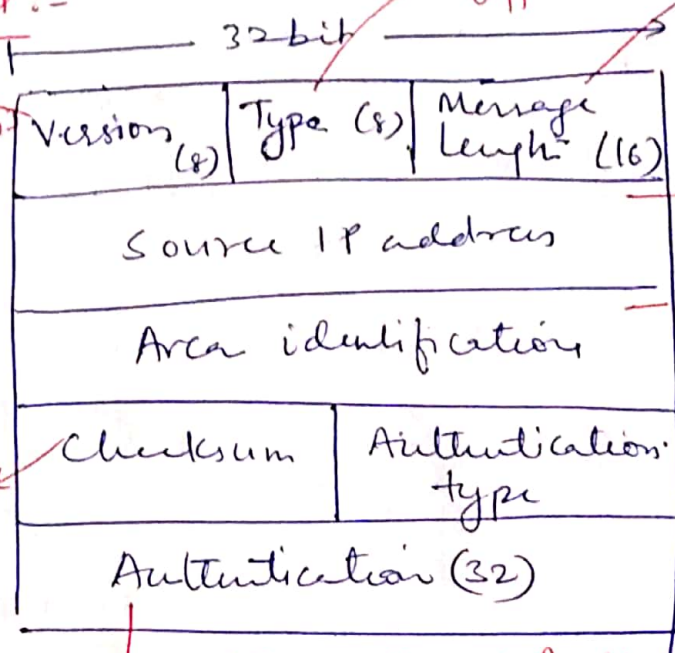 32 bit
Version (8)
Type (8)
Message Lengh (16)
Source IP address
Area identification
Checksum
Authentication type
Authentication (32)